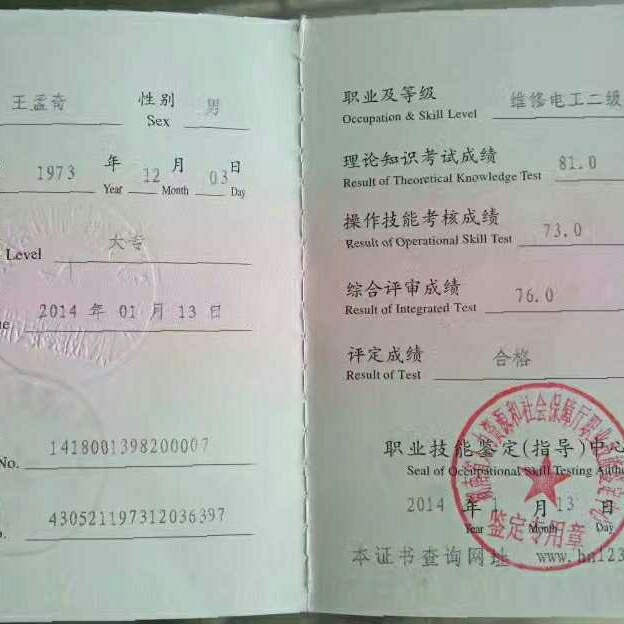 王孟奇 性别 男
Sex
1973 年 12 月 03 日
Year Month Day
Level 大专
2014 年 01 月 13 日
No. 1418001398200007
430521197312036397
职业及等级 维修电工二级
Occupation & Skill Level
理论知识考试成绩 81.0
Result of Theoretical Knowledge Test
操作技能考核成绩 73.0
Result of Operational Skill Test
综合评审成绩 76.0
Result of Integrated Test
评定成绩 合格
Result of Test
职业技能鉴定(指导)中心
Seal of Occupational Skill Testing Autho
2014 年 1 月 13 日
Year Month Day
鉴定专用章
本证书查询网址 www.hn123